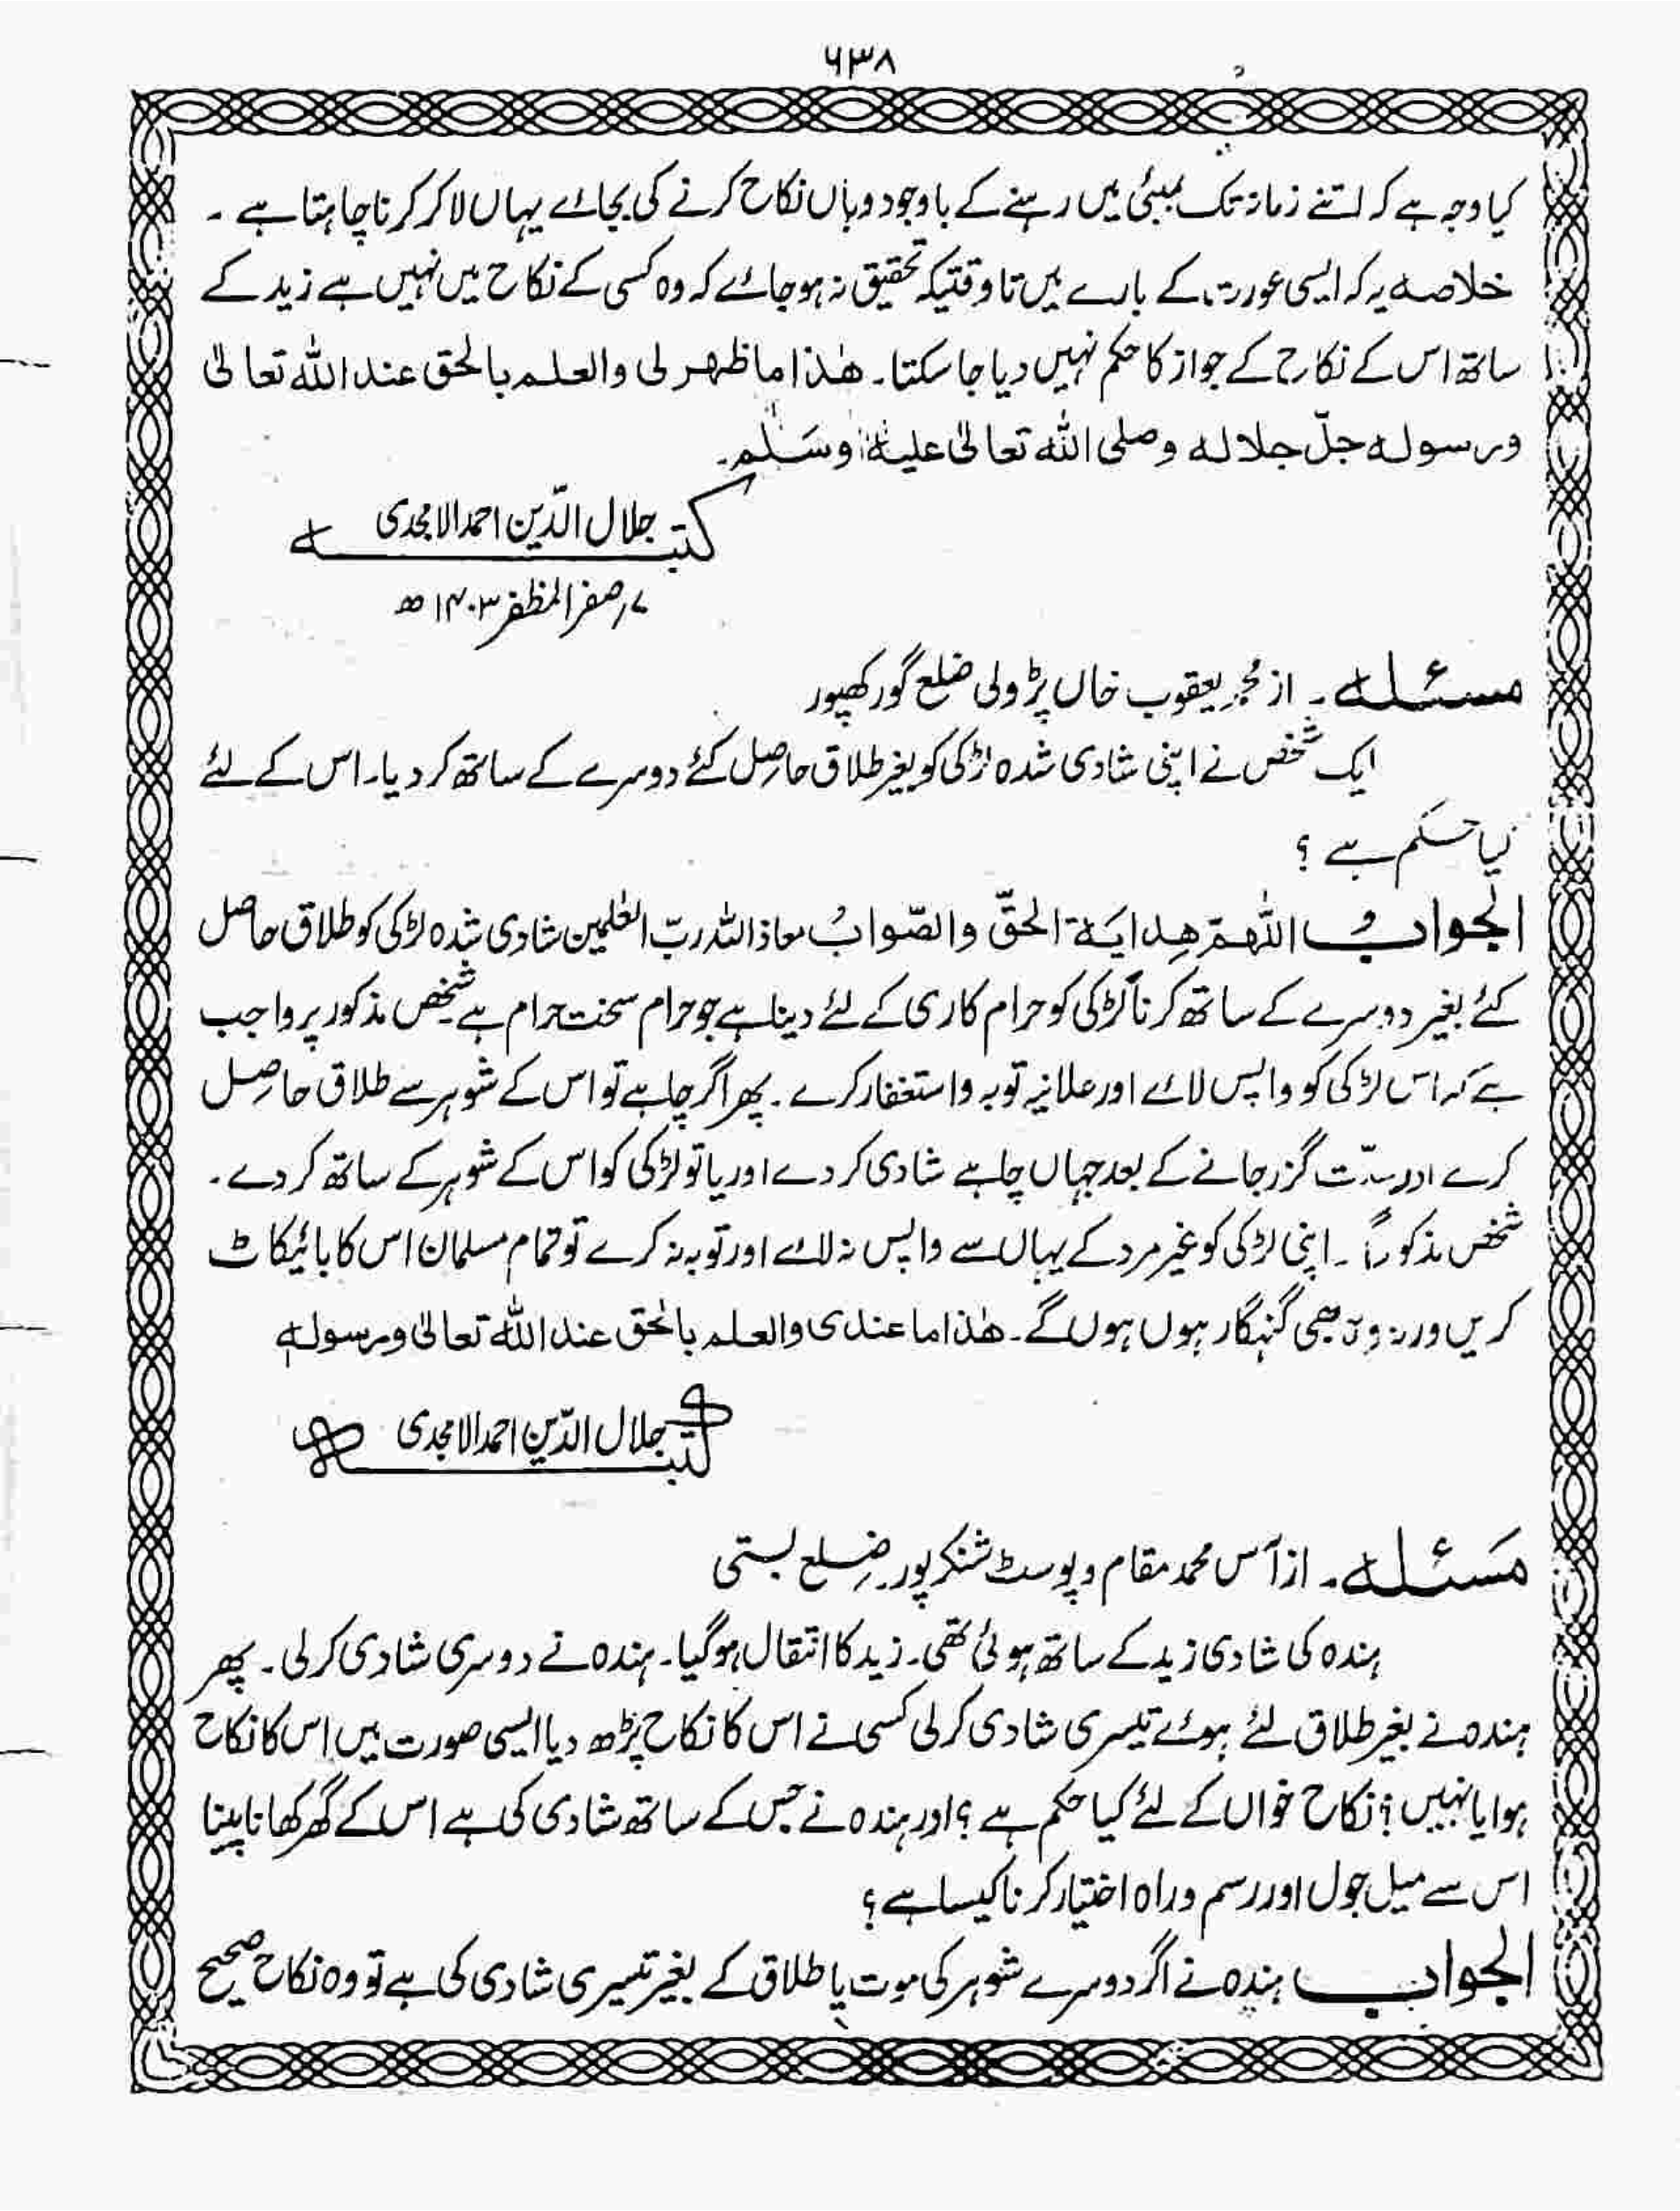 ۶۳۸
کیا وجہ ہے کہ اتنے زمانہ تک بمبئی میں رہنے کے باوجود وہاں نکاح کرنے کی بجائے یہاں لاکر کرنا چاہتا ہے ۔
خلاصہ یہ کہ ایسی عورت کے بارے میں تاوقتیکہ تحقیق نہ ہوجائے کہ وہ کسی کے نکاح میں نہیں ہے زید کے
ساتھ اس کے نکاح کے جواز کا حکم نہیں دیا جا سکتا۔ ھٰذا ما ظھر لی والعلم بالحق عند اللہ تعالیٰ
ورسولہ جلّ جلالہ وصلی اللہ تعالیٰ علیہ وسَلم۔
کتبہ جلال الدّین احمد الامجدی
۷؍صفر المظفر ۱۴۰۳ھ
مسئلہ ۔ از محمد یعقوب خاں پڑولی ضلع گورکھپور
ایک شخص نے اپنی شادی شدہ لڑکی کو بغیر طلاق حاصل کئے دوسرے کے ساتھ کر دیا۔ اس کے لئے
کیا حکم ہے ؟
الجوابُ اللّٰھمّ ھِدایَۃ الحقّ والصّوابُ معاذ اللہ ربّ العٰلمین شادی شدہ لڑکی کو طلاق حاصل
کئے بغیر دوسرے کے ساتھ کرنا لڑکی کو حرام کاری کے لئے دینا ہے جو حرام سخت حرام ہے شخص مذکور پر واجب
ہے کہ اس لڑکی کو واپس لائے اور علانیہ توبہ واستغفار کرے ۔ پھر اگر چاہے تو اس کے شوہر سے طلاق حاصل
کرے اور عدّت گزر جانے کے بعد جہاں چاہے شادی کر دے اور یا تو لڑکی کو اس کے شوہر کے ساتھ کر دے ۔
شخص مذکور اگر اپنی لڑکی کو غیر مرد کے یہاں سے واپس نہ لائے اور توبہ نہ کرے تو تمام مسلمان اس کا بائیکاٹ
کریں ورنہ وہ بھی گنہگار ہوں ہوں گے۔ ھٰذا ما عندی والعلم بالحق عند اللہ تعالیٰ ورسولہ
کتبہ جلال الدّین احمد الامجدی
مَسئلہ ۔ از آس محمد مقام و پوسٹ شنکر پور۔ ضلع بستی
ہندہ کی شادی زید کے ساتھ ہوئی تھی۔ زید کا انتقال ہوگیا۔ ہندہ نے دوسری شادی کرلی ۔ پھر
ہندہ نے بغیر طلاق لئے ہوئے تیسری شادی کرلی کسی نے اس کا نکاح پڑھ دیا ایسی صورت میں اس کا نکاح
ہوا یا نہیں؟ نکاح خواں کے لئے کیا حکم ہے؟ اور ہندہ نے جس کے ساتھ شادی کی ہے اس کے گھر کھانا پینا
اس سے میل جول اور رسم وراہ اختیار کرنا کیسا ہے؟
الجواب ہندہ نے اگر دوسرے شوہر کی موت یا طلاق کے بغیر تیسری شادی کی ہے تو وہ نکاح صحیح